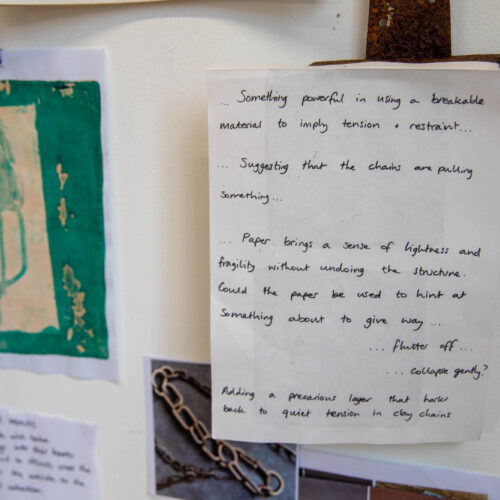 ... Something powerful in using a breakable
material to imply tension + restraint...
... Suggesting that the chains are pulling
something...
... Paper brings a sense of lightness and
fragility without undoing the structure.
Could the paper be used to hint at
something about to give way...
... flutter off...
... collapse gently?
Adding a precarious layer that harks
back to quiet tension in clay chains